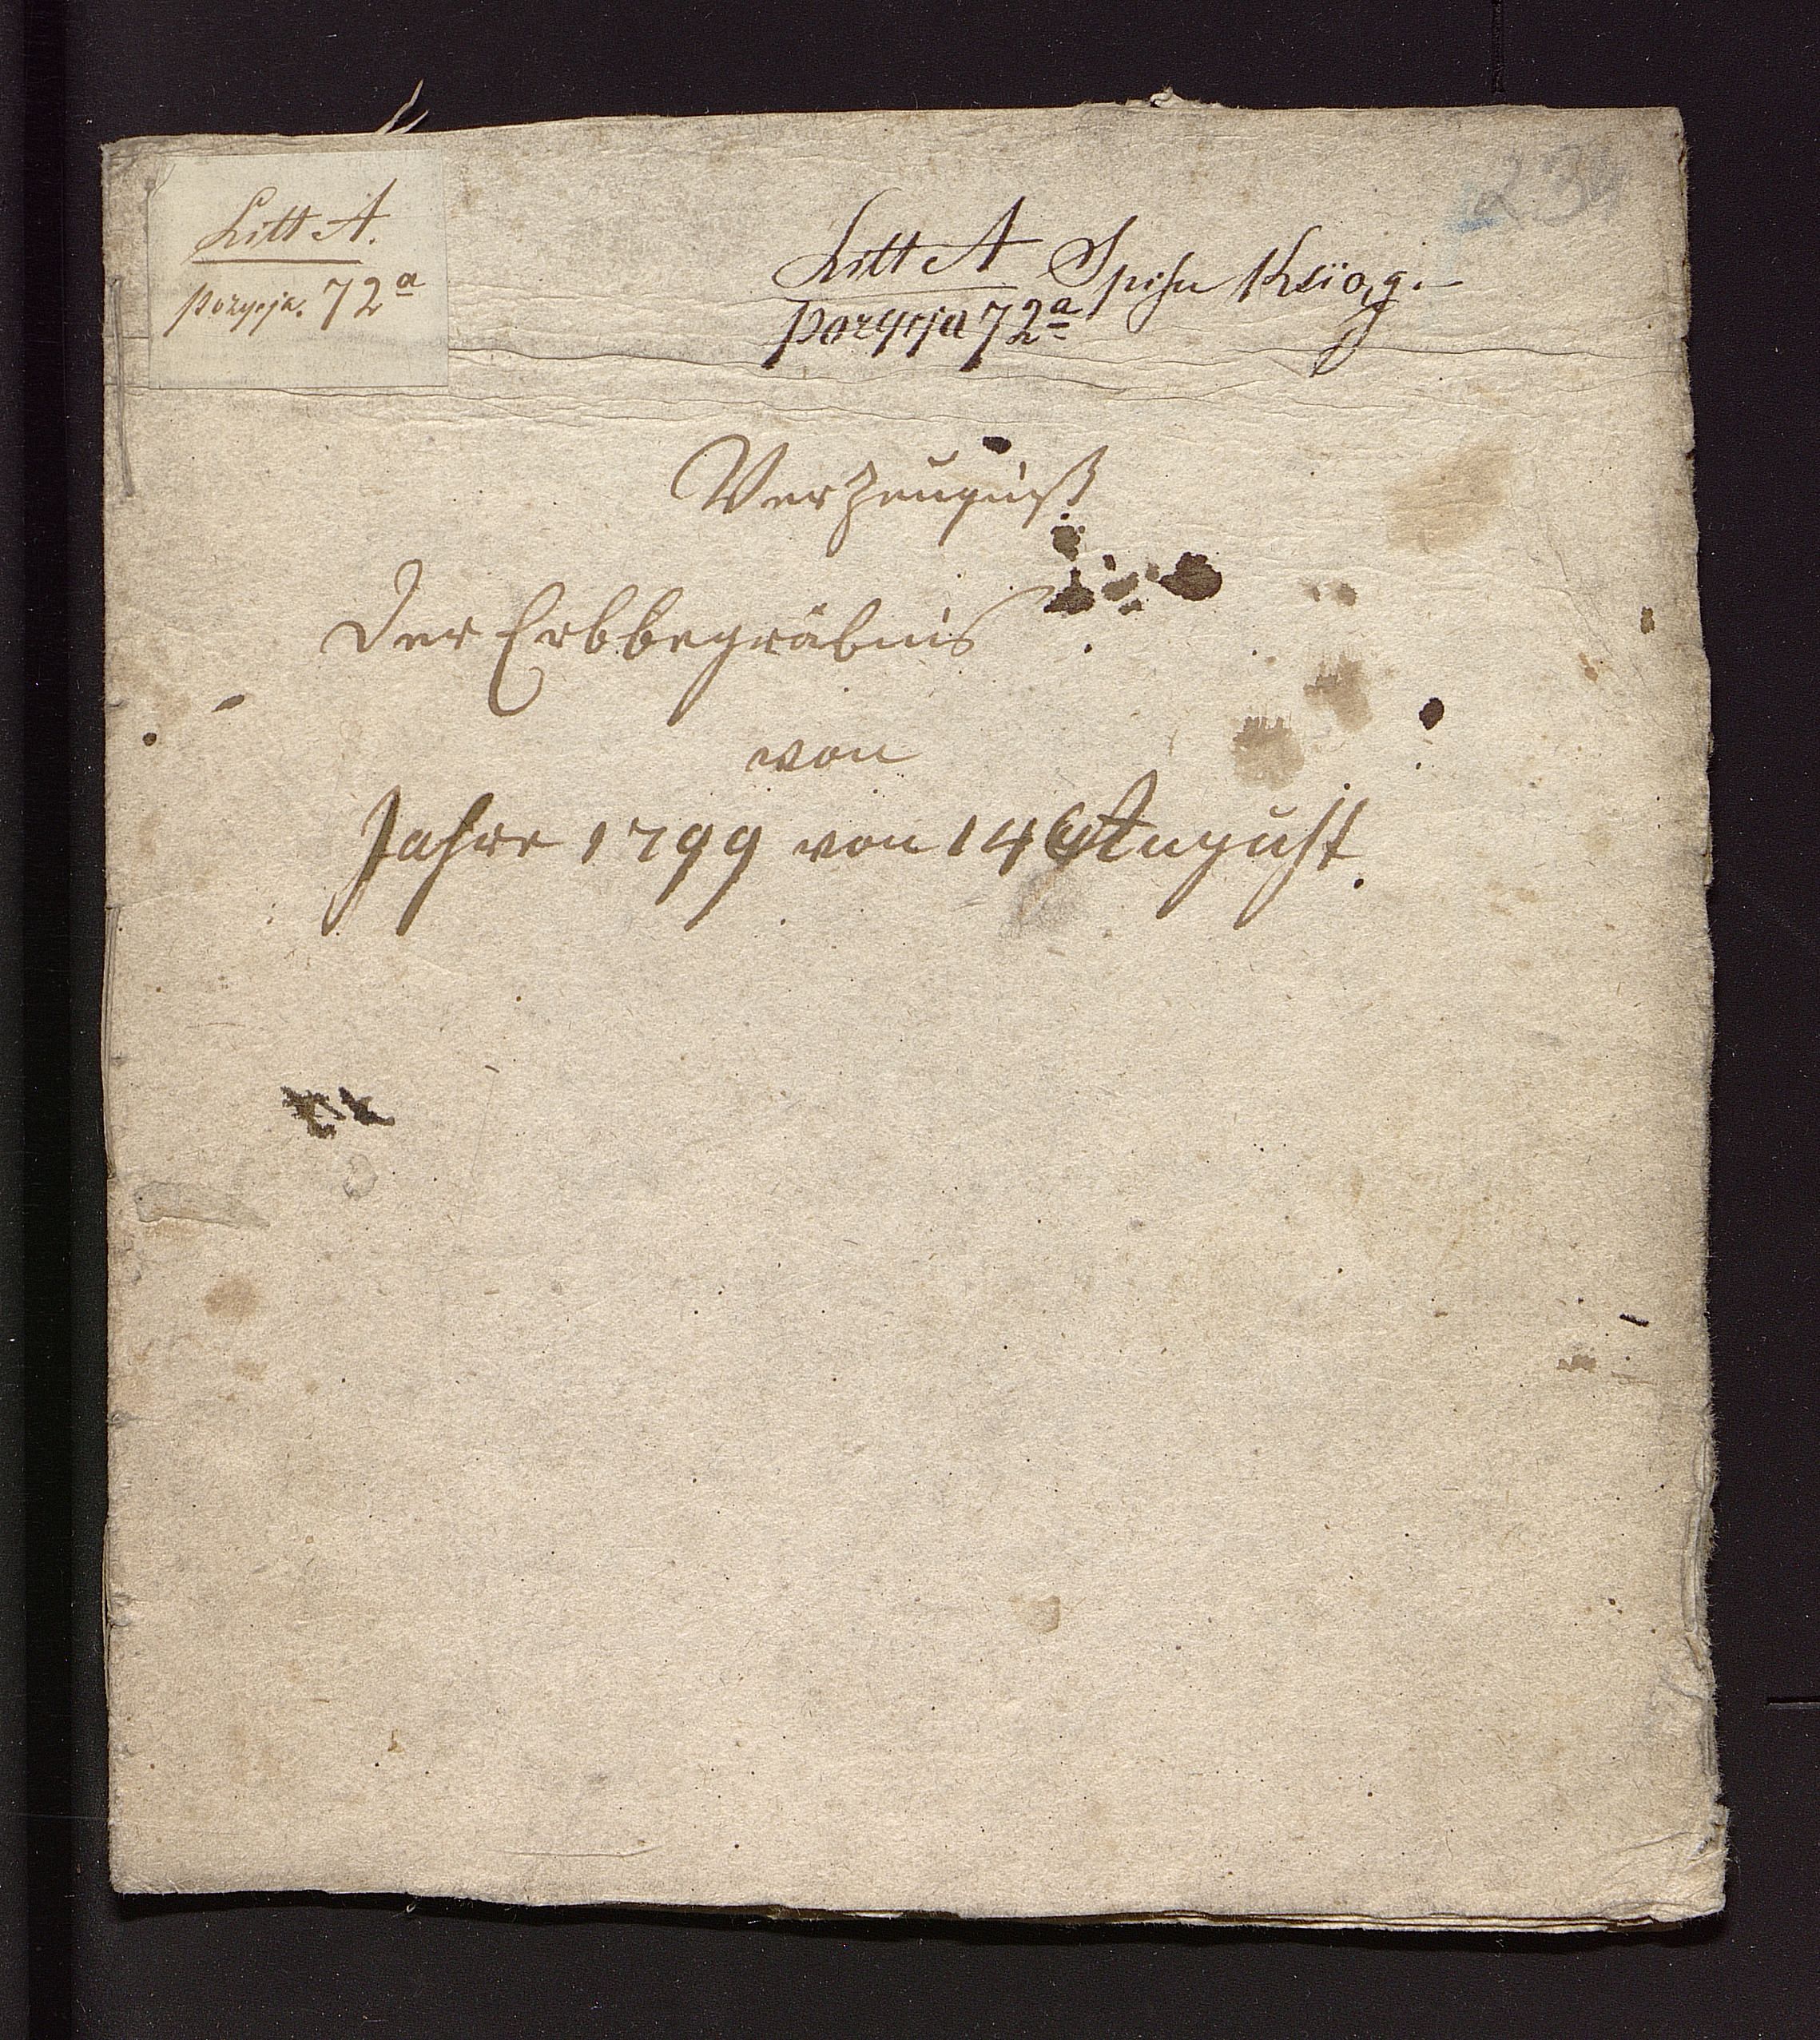 Litt A.
pozycja. 72a
Litt A Spisu Ksiąg.
pozycja 72a
Verzeugniß
Der Erbbegräbnis
von
Jahre 1799 von 14 August.